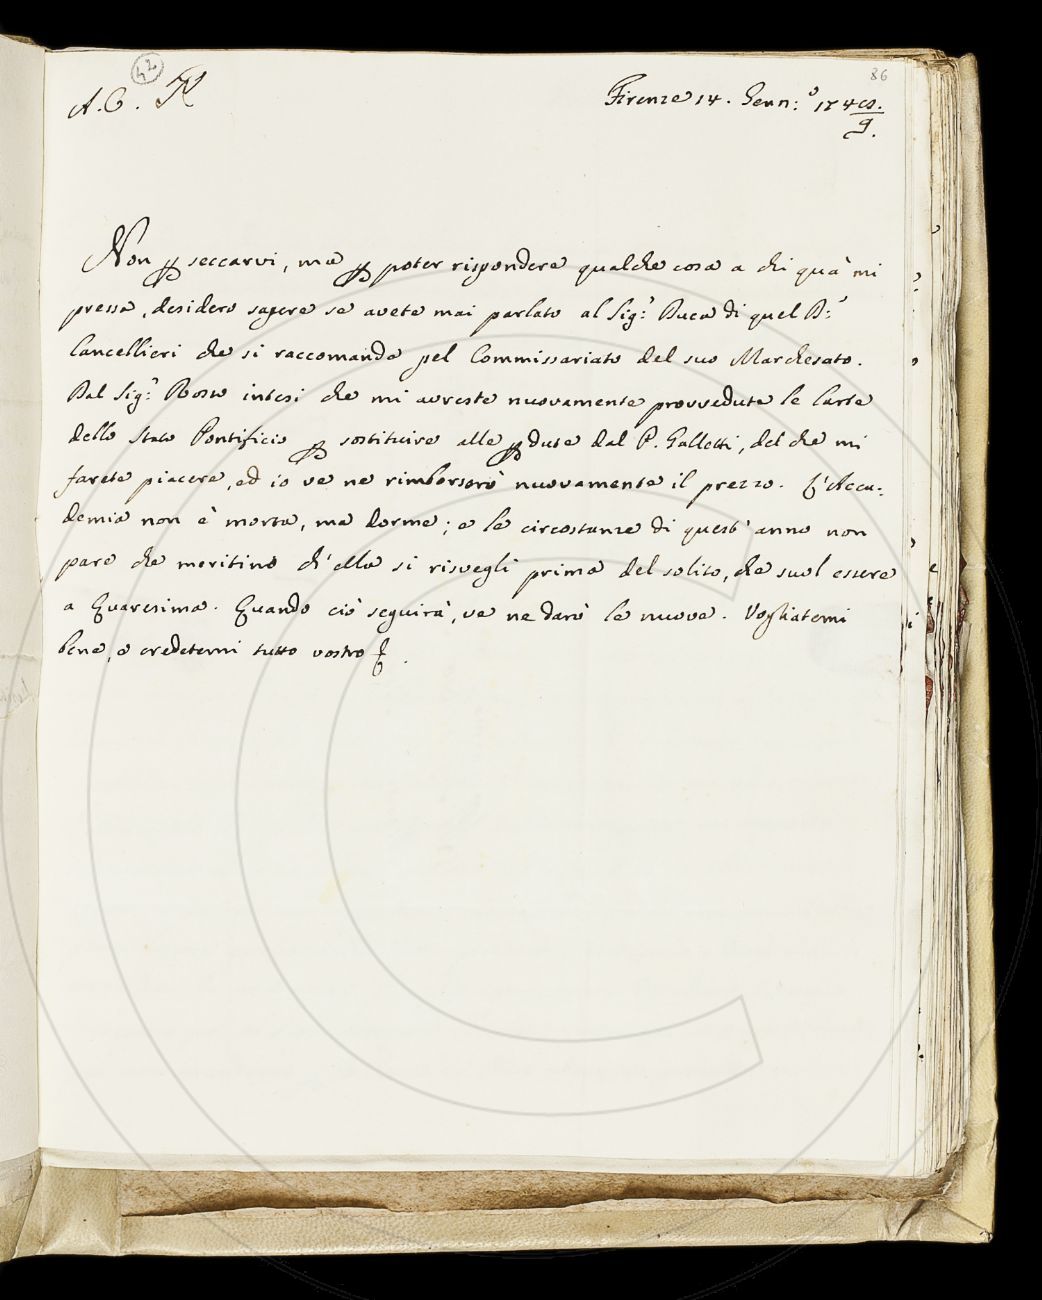 42
86
A. C. K
Firenze 14. Genn:º 174 8/9.
Non p seccarvi, ma p poter rispondere qualche cosa a chi quà mi
pressa, desidero sapere se avete mai parlato al Sig:r Duca di quel D:r
Cancellieri che si raccomanda pel Commissariato del suo Marchesato.
Dal Sig:r Bosio intesi che mi avreste nuovamente provvedute le Carte
dello Stato Pontificio p sostituire alle pdute dal P. Galletti, del che mi
farete piacere, ed io ve ne rimborserò nuovamente il prezzo. L'Acca-
demia non è morta, ma dorme; e le circostanze di quest'anno non
pare che meritino ch'ella si risvegli prima del solito, che suol essere
a Quaresima. Quando ciò seguirà, ve ne darò le nuove. Vogliatemi
bene, e credetemi tutto vostro